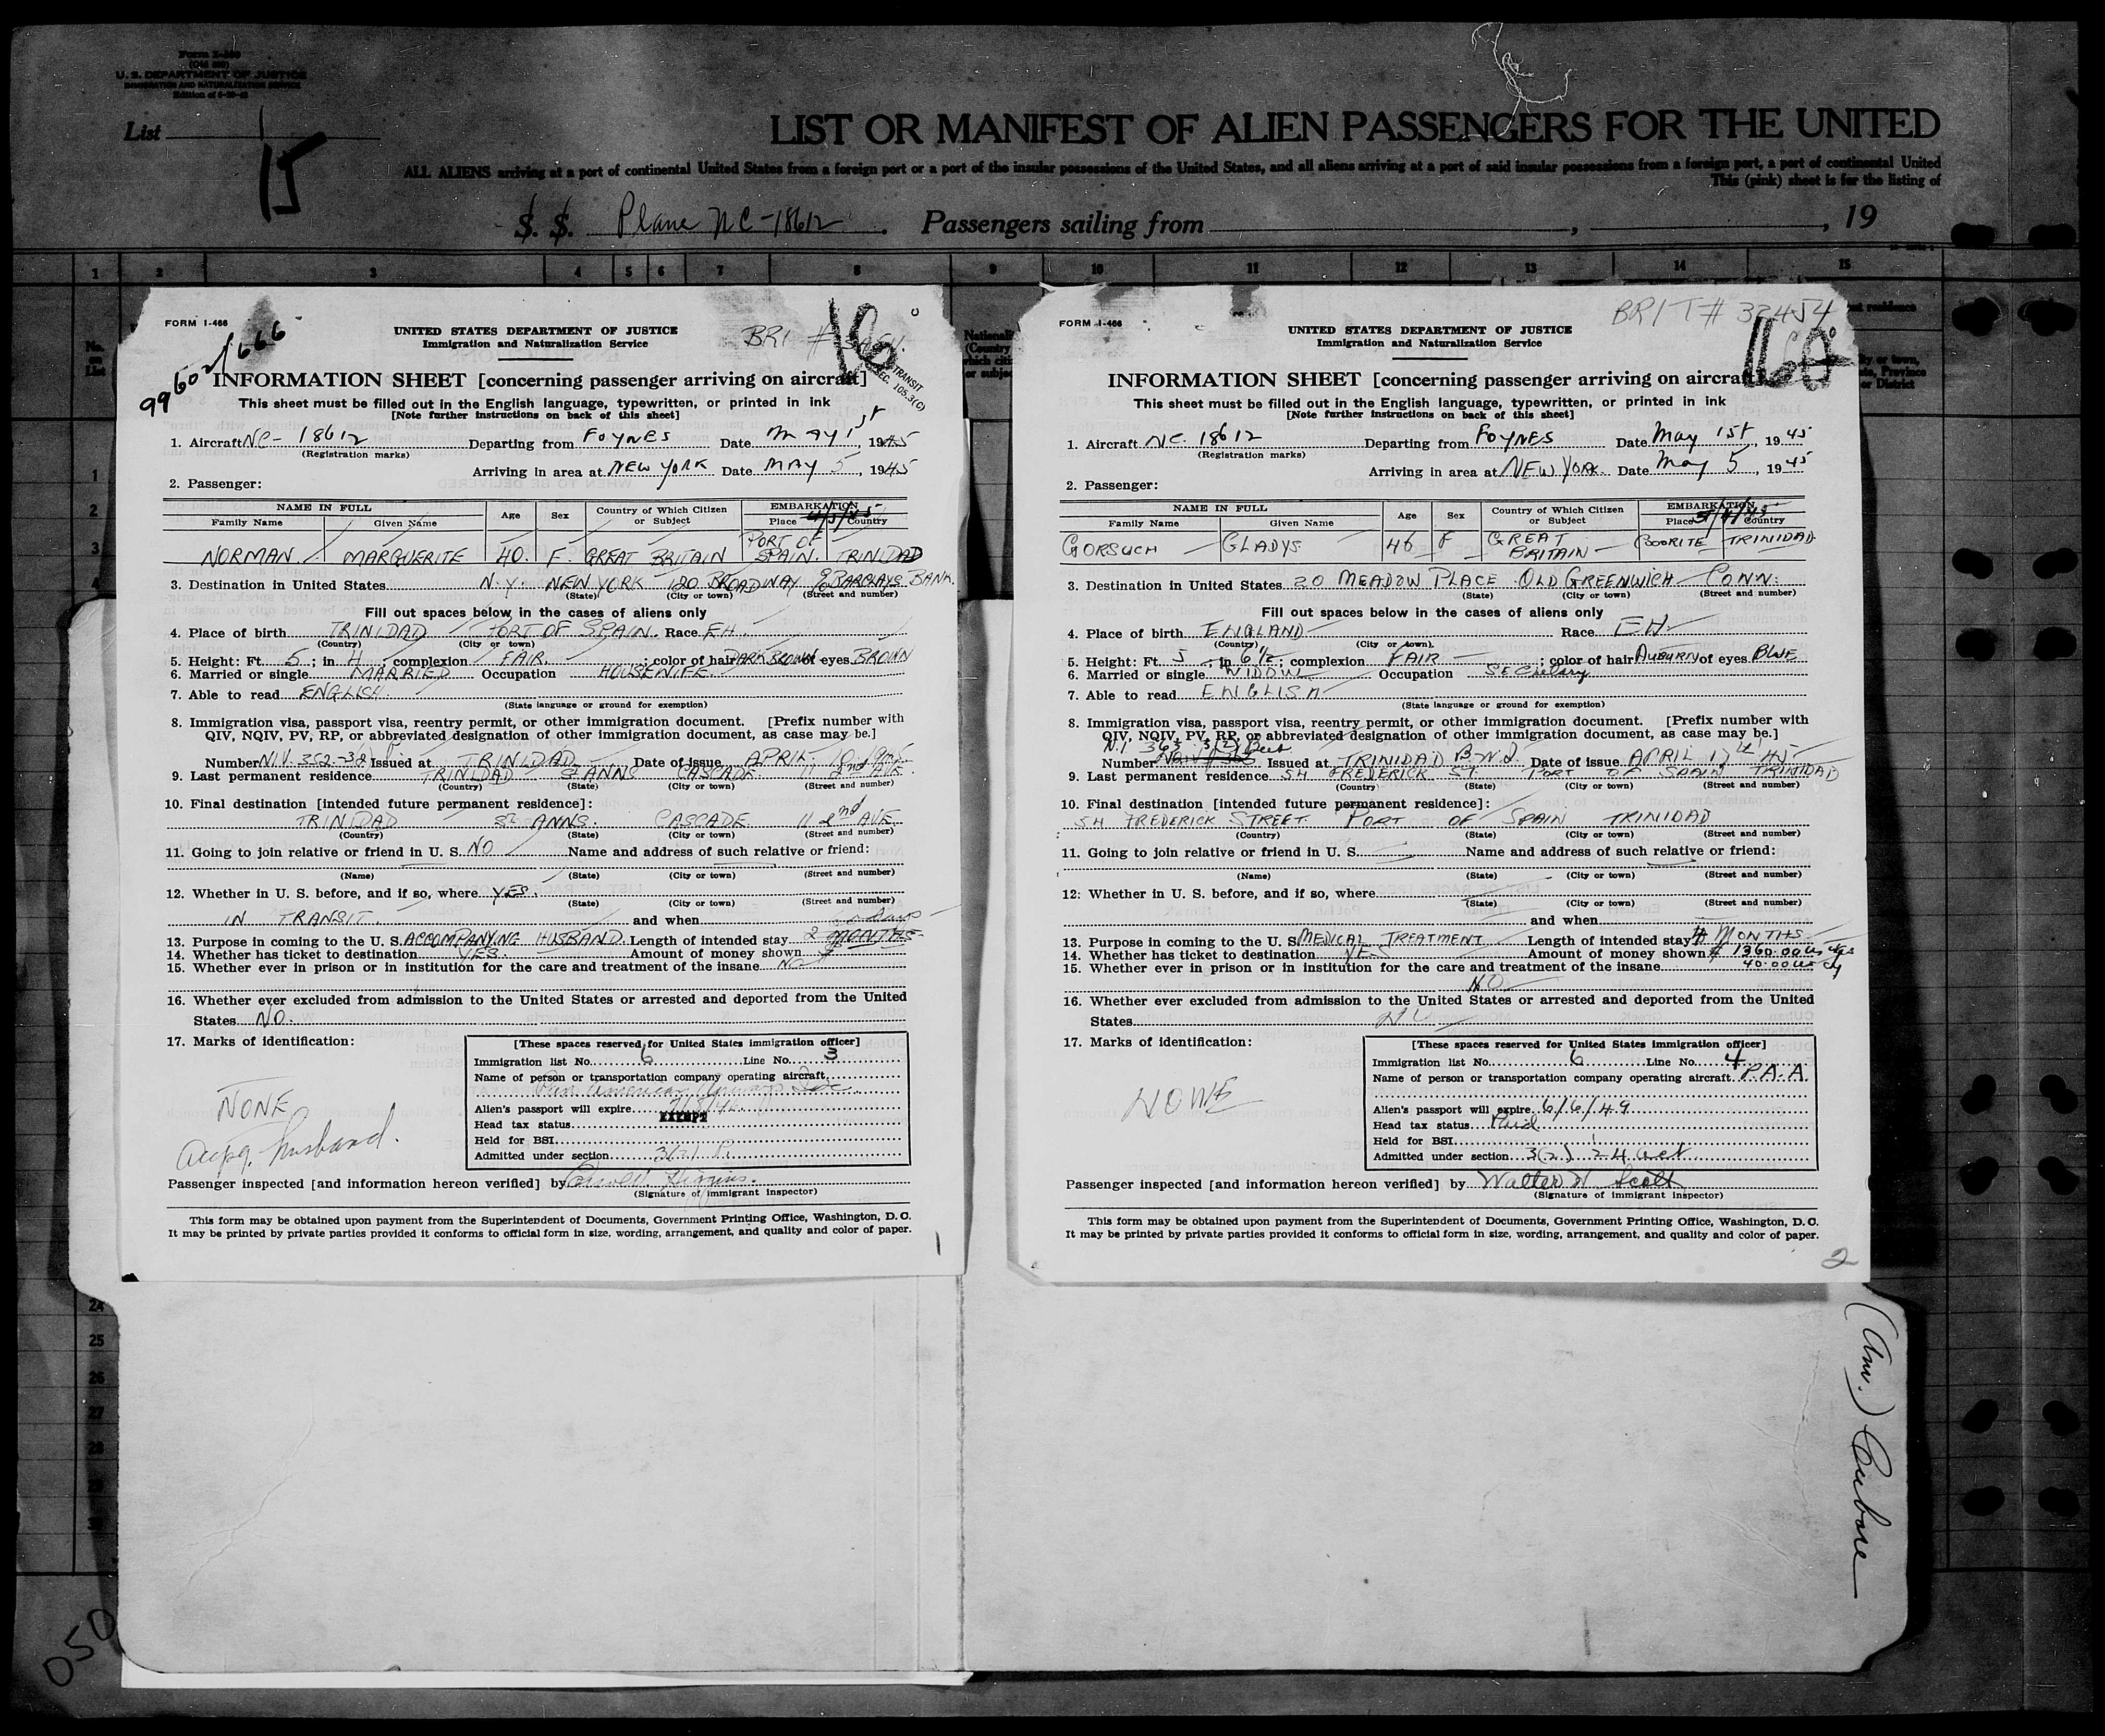 Form I-466
(Old 500)
U. S. DEPARTMENT OF JUSTICE
IMMIGRATION AND NATURALIZATION SERVICE
List
15
LIST OR MANIFEST OF ALIEN PASSENGERS FOR THE UNITED
ALL ALIENS arriving at a port of continental United States from a foreign port or a port of the insular possessions of the United States, and all aliens arriving at a port of said insular possessions from a foreign port, a port of continental United
This (pink) sheet is for the listing of
S. S. Plane NC-18612. Passengers sailing from , , 19
1 2 3 4 5 6 7 8 9 10 11 12 13 14 15
FORM I-466
99602/666
UNITED STATES DEPARTMENT OF JUSTICE
Immigration and Naturalization Service
BRI #
16
TRANSIT
SEC. 105.3(C)
INFORMATION SHEET [concerning passenger arriving on aircraft]
This sheet must be filled out in the English language, typewritten, or printed in ink
[Note further instructions on back of this sheet]
1. Aircraft NC-18612 Departing from FOYNES Date May 1st, 1945
(Registration marks)
Arriving in area at NEW YORK Date MAY 5, 1945
2. Passenger:
NAME IN FULL Age Sex Country of Which Citizen or Subject EMBARKATION
Family Name Given Name Place Country
NORMAN MARGUERITE 40. F. GREAT BRITAIN PORT OF SPAIN. TRINIDAD
3. Destination in United States N.Y. NEW YORK 120 BROADWAY c/o BARCLAYS BANK.
(State) (City or town) (Street and number)
Fill out spaces below in the cases of aliens only
4. Place of birth TRINIDAD PORT OF SPAIN. Race EH.
(Country) (City or town)
5. Height: Ft. 5; in 4; complexion FAIR.; color of hair DARK BROWN of eyes BROWN
6. Married or single MARRIED Occupation HOUSEWIFE.
7. Able to read ENGLISH.
(State language or ground for exemption)
8. Immigration visa, passport visa, reentry permit, or other immigration document. [Prefix number with
QIV, NQIV, PV, RP, or abbreviated designation of other immigration document, as case may be.]
Number N.I.V. 352 Issued at TRINIDAD Date of issue APRIL
9. Last permanent residence TRINIDAD ST ANNS CASCADE. 11 2nd AVE.
(Country) (State) (City or town) (Street and number)
10. Final destination [intended future permanent residence]:
TRINIDAD ST. ANNS. CASCADE 11 2nd AVE.
(Country) (State) (City or town) (Street and number)
11. Going to join relative or friend in U. S. NO Name and address of such relative or friend:
(Name) (State) (City or town) (Street and number)
12. Whether in U. S. before, and if so, where YES.
(State) (City or town) (Street and number)
IN TRANSIT. and when
13. Purpose in coming to the U. S. ACCOMPANYING HUSBAND. Length of intended stay 2 MONTHS
14. Whether has ticket to destination YES. Amount of money shown
15. Whether ever in prison or in institution for the care and treatment of the insane No
16. Whether ever excluded from admission to the United States or arrested and deported from the United
States NO.
17. Marks of identification:
NONE
Accpg. husband.
[These spaces reserved for United States immigration officer]
Immigration list No. 6 Line No. 3
Name of person or transportation company operating aircraft
Pan American Airways Inc.
Alien's passport will expire
Head tax status EXEMPT
Held for BSI
Admitted under section
Passenger inspected [and information hereon verified] by
(Signature of immigrant inspector)
This form may be obtained upon payment from the Superintendent of Documents, Government Printing Office, Washington, D. C.
It may be printed by private parties provided it conforms to official form in size, wording, arrangement, and quality and color of paper.
1
FORM I-466
BRIT # 32454
UNITED STATES DEPARTMENT OF JUSTICE
Immigration and Naturalization Service
INFORMATION SHEET [concerning passenger arriving on aircraft]
This sheet must be filled out in the English language, typewritten, or printed in ink
[Note further instructions on back of this sheet]
1. Aircraft NC. 18612 Departing from FOYNES Date May 1st, 1945
(Registration marks)
Arriving in area at NEW YORK. Date May 5, 1945
2. Passenger:
NAME IN FULL Age Sex Country of Which Citizen or Subject EMBARKATION
Family Name Given Name Place Country
GORSUCH GLADYS 46 F GREAT BRITAIN TRINIDAD
3. Destination in United States 20 MEADOW PLACE OLD GREENWICH CONN.
(State) (City or town) (Street and number)
Fill out spaces below in the cases of aliens only
4. Place of birth ENGLAND Race EH.
(Country) (City or town)
5. Height: Ft. 5; in 6½; complexion FAIR; color of hair AUBURN of eyes BLUE
6. Married or single WIDOW Occupation Secretary
7. Able to read ENGLISH
(State language or ground for exemption)
8. Immigration visa, passport visa, reentry permit, or other immigration document. [Prefix number with
QIV, NQIV, PV, RP, or abbreviated designation of other immigration document, as case may be.]
N.I 363 3(2)
Number Issued at TRINIDAD B.W.I. Date of issue APRIL 17th 45
9. Last permanent residence 54 FREDERICK ST. PORT OF SPAIN TRINIDAD
(Country) (State) (City or town) (Street and number)
10. Final destination [intended future permanent residence]:
54 FREDERICK STREET. PORT OF SPAIN TRINIDAD
(Country) (State) (City or town) (Street and number)
11. Going to join relative or friend in U. S. Name and address of such relative or friend:
(Name) (State) (City or town) (Street and number)
12. Whether in U. S. before, and if so, where
(State) (City or town) (Street and number)
and when
13. Purpose in coming to the U. S. MEDICAL TREATMENT Length of intended stay 4 MONTHS
14. Whether has ticket to destination YES Amount of money shown $ 1360.00
15. Whether ever in prison or in institution for the care and treatment of the insane 40.00
NO
16. Whether ever excluded from admission to the United States or arrested and deported from the United
States
17. Marks of identification:
NONE
[These spaces reserved for United States immigration officer]
Immigration list No. 6 Line No. 4
Name of person or transportation company operating aircraft P.A.A.
Alien's passport will expire 6/6/49
Head tax status Paid
Held for BSI
Admitted under section 3(2) 24 act
Passenger inspected [and information hereon verified] by Walter W Scott
(Signature of immigrant inspector)
This form may be obtained upon payment from the Superintendent of Documents, Government Printing Office, Washington, D. C.
It may be printed by private parties provided it conforms to official form in size, wording, arrangement, and quality and color of paper.
2
24
25
26
27
28
29
050